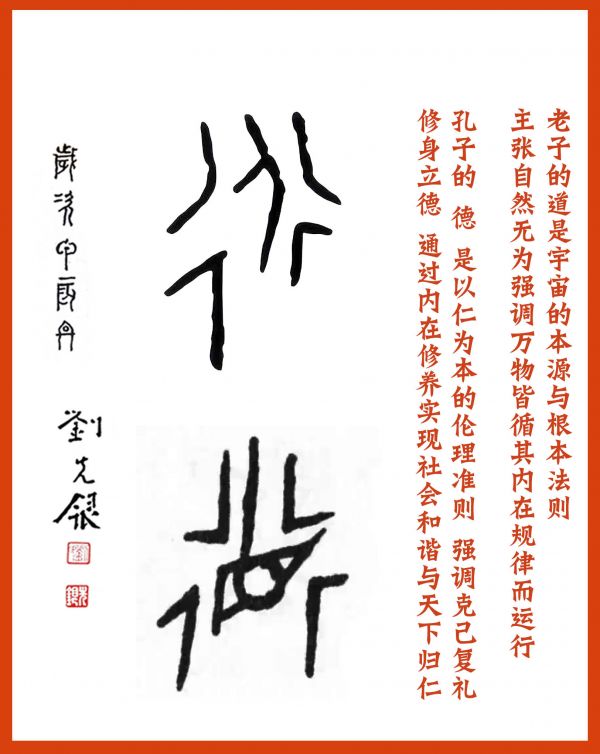 老子的道是宇宙的本源与根本法则
主张自然无为强调万物皆循其内在规律而运行
孔子的 德 是以仁为本的伦理准则 强调克己复礼
修身立德 通过内在修养实现社会和谐与天下归仁
歲次
劉先銀